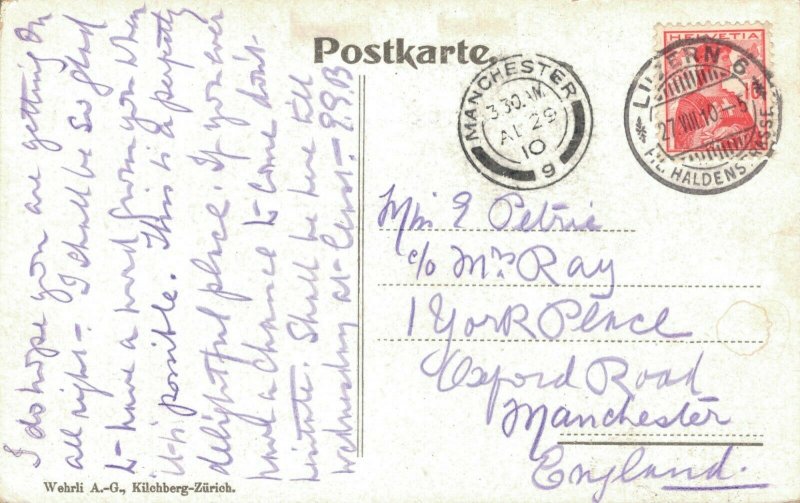 Postkarte.
I do hope you are getting on
all right - I shall be so glad
to have a word from you when
it is possible. This is a perfectly
delightful place. If you ever
have a chance to come don't
hesitate. Shall be here till
Wednesday at least -
MANCHESTER
3 30 AM
AU 29
10
9
HELVETIA
10
LUZERN 6
27 VIII 10 - 5
FIL. HALDENSTRASSE
Miss E Petrie
c/o Mrs Ray
1 York Place
Oxford Road
Manchester
England.
Wehrli A.-G., Kilchberg-Zürich.